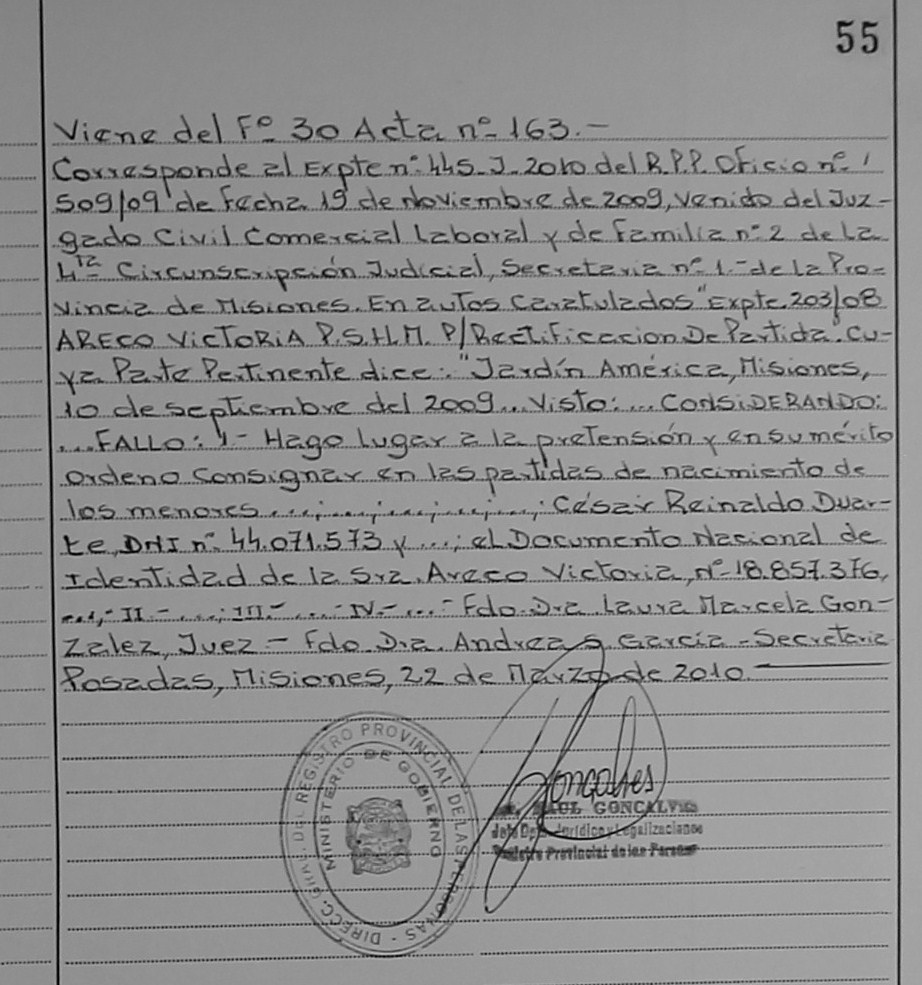 55
Viene del Fº 30 Acta nº 163.-
Corresponde al Expte nº 445-J-2010 del R.P.P. Oficio nº 1
509/09 de fecha 19 de Noviembre de 2009, venido del Juz-
gado Civil Comercial Laboral y de Familia nº 2 de La
4ta Circunscripción Judicial, Secretaria nº 1.- de La Pro-
vincia de Misiones. En autos caratulados "Expte 203/08
ARECO VICTORIA P.S.H.M. P/Rectificacion De Partida". Cu-
ya Parte Pertinente dice: "Jardín América, Misiones,
10 de septiembre del 2009... Visto:... CONSIDERANDO:
...FALLO: 1- Hago lugar a la pretensión y en su mérito
ordeno consignar en las partidas de nacimiento de
los menores ...;...;...;...;...; César Reinaldo Duar-
te, DNI nº 44.071.573 y ...; el Documento Nacional de
Identidad de la Sra. Areco Victoria, nº 18.857.376,
...- II - ...; III.- ... - IV.- ...- Fdo. Dra Laura Marcela Gon-
zalez, Juez - Fdo Dra. Andrea S. García - Secretaria
Posadas, Misiones, 22 de Marzo de 2010.
DIRECC. GRAL. DEL REGISTRO PROVINCIAL DE LAS PERSONAS
MINISTERIO DE GOBIERNO
Goncalves
RAUL GONCALVES
Jefe Dpto Jurídico y Legalizaciones
Registro Provincial de las Personas